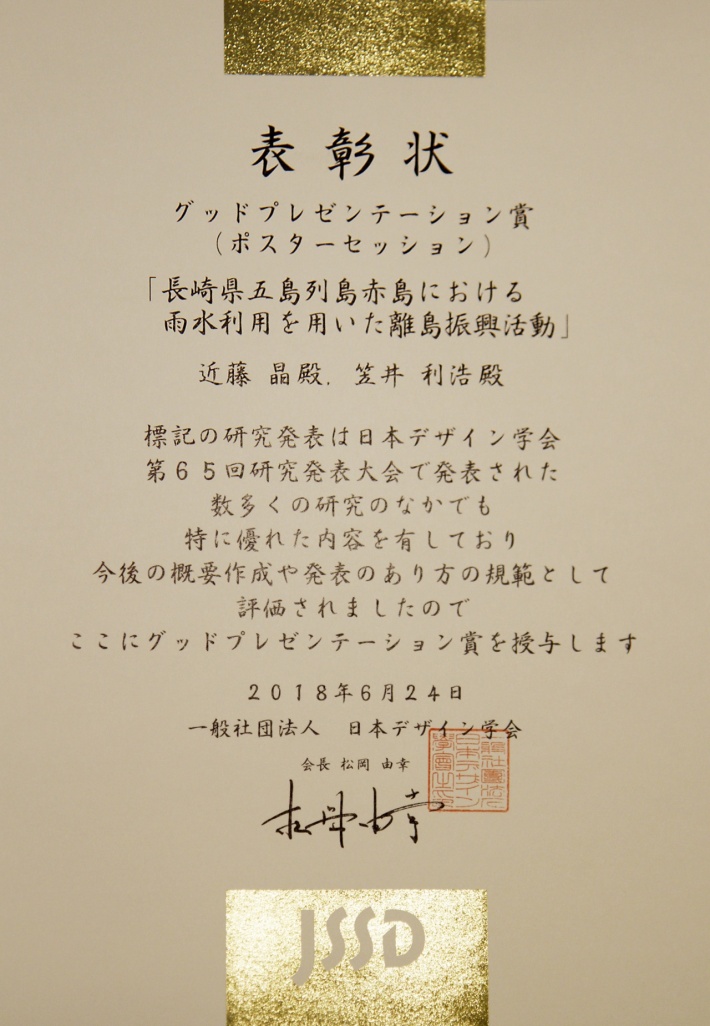 表彰状
グッドプレゼンテーション賞
（ポスターセッション）
「長崎県五島列島赤島における
雨水利用を用いた離島振興活動」
近藤 晶殿, 笠井 利浩殿
標記の研究発表は日本デザイン学会
第６５回研究発表大会で発表された
数多くの研究のなかでも
特に優れた内容を有しており
今後の概要作成や発表のあり方の規範として
評価されましたので
ここにグッドプレゼンテーション賞を授与します
２０１８年６月２４日
一般社団法人　日本デザイン学会
会長 松岡 由幸
松岡由幸
JSSD